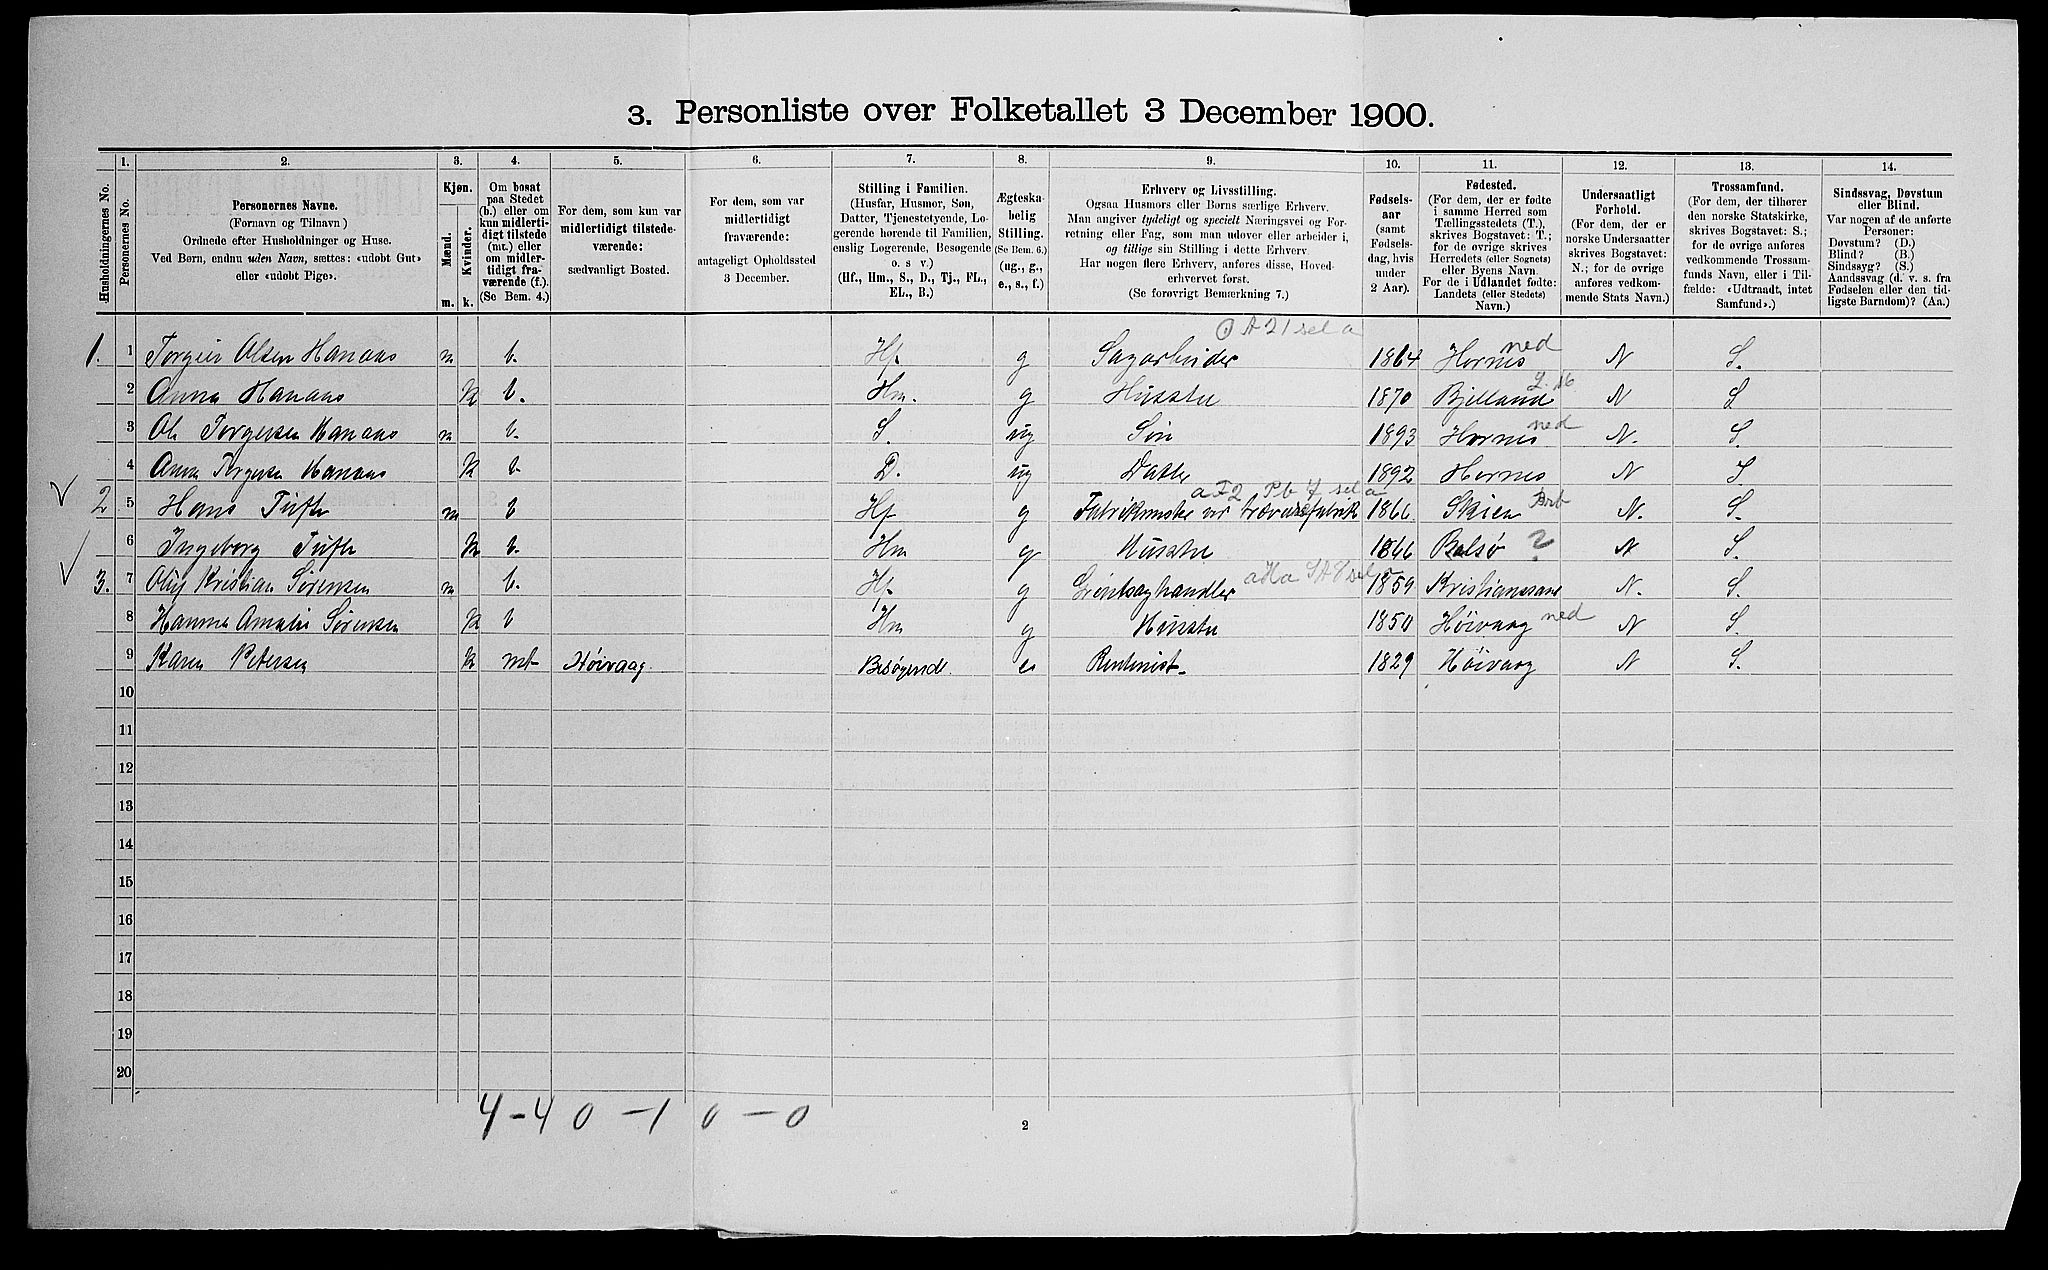 3. Personliste over Folketallet 3 December 1900.
1. 2. 3. 4. 5. 6. 7. 8. 9. 10. 11. 12. 13. 14.
Husholdningernes No.
Personernes No.
Personernes Navne.
(Fornavn og Tilnavn)
Ordnede efter Husholdninger og Huse.
Ved Børn, endnu uden Navn, sættes: «udobt Gut»
eller «udobt Pige».
Kjøn.
Mænd.
Kvinder.
m. k.
Om bosat
paa Stedet
(b.) eller om
kun midlerti-
digt tilstede
(mt.) eller
om midler-
tidigt fra-
værende (f.).
(Se Bem. 4.)
For dem, som kun var
midlertidigt tilstede-
værende:
sædvanligt Bosted.
For dem, som var
midlertidigt
fraværende:
antageligt Opholdssted
3 December.
Stilling i Familien.
(Husfar, Husmor, Søn,
Datter, Tjenestetyende, Lo-
gerende hørende til Familien,
enslig Logerende, Besøgende
o. s v.)
(Hf., Hm., S., D., Tj., FL.,
EL., B.)
Ægteska-
belig
Stilling.
(Se Bem. 6.)
(ug., g.,
e., s., f.)
Erhverv og Livsstilling.
Ogsaa Husmors eller Børns særlige Erhverv.
Man angiver tydeligt og specielt Næringsvei og For-
retning eller Fag, som man udover eller arbeider i,
og tillige sin Stilling i dette Erhverv.
Har nogen flere Erhverv, anføres disse, Hoved-
erhvervet først.
(Se forøvrigt Bemærkning 7.)
Fødsels-
aar
(samt
Fødsels-
dag, hvis
under
2 Aar).
Fødested.
(For dem, der er fødte
i samme Herred som
Tællingsstedets (T.),
skrives Bogstavet: T.;
for de øvrige skrives
Herredets (eller Sognets)
eller Byens Navn.
For de i Udlandet fødte:
Landets (eller Stedets)
Navn.)
Undersaatligt
Forhold.
(For dem, der er
norske Undersaatter
skrives Bogstavet:
N.; for de øvrige
anføres vedkom-
mende Stats Navn.)
Trossamfund.
(For dem, der tilhører
den norske Statskirke,
skrives Bogstavet: S.;
for de øvrige anføres
vedkommende Trossam-
funds Navn, eller i Til-
fælde: «Udtraadt, intet
Samfund».)
Sindssvag, Døvstum
eller Blind.
Var nogen af de anførte
Personer:
Døvstum? (D.)
Blind? (B.)
Sindssyg? (S.)
Aandssvag (d. v. s. fra
Fødselen eller den tid-
ligste Barndom)? (Aa.)
A 21 sel a
1. 1 Torgeir Olsen Hanaas m b. Hf. g Sagarbeider 1864 Hornes ned N S.
2 Anna Hanaas k b. Hm. g Husstru 1870 Bjelland N S
3 Ole Torgersen Hanaas m b. S. ug Søn 1893 Hornes ned N. S.
4 Anna Torgersen Hanaas k b. D. ug Datter 1892 Hornes N S
a F2 Pb 7 sel a
2 5 Hans Tufte m b Hf g Fabrikmester ver trævarefabrik 1866 Skien N. S.
6 Ingeborg Tufte k b. Hm g Husstru 1866 ? N S.
3. 7 Oluf Kristian Sørensen m b. Hf. g Grøntsaghandler 1859 Kristianssand N. S.
8 Hanna Amalie Sørensen k b Hm g Husstru 1850 Høivaag ned N S.
9 Karen Petersen k mt Høivaag. Besøgende. e Rentenist 1829 Høivaag N S.
10
11
12
13
14
15
16
17
18
19
20
4-4 0-1 0-0
2